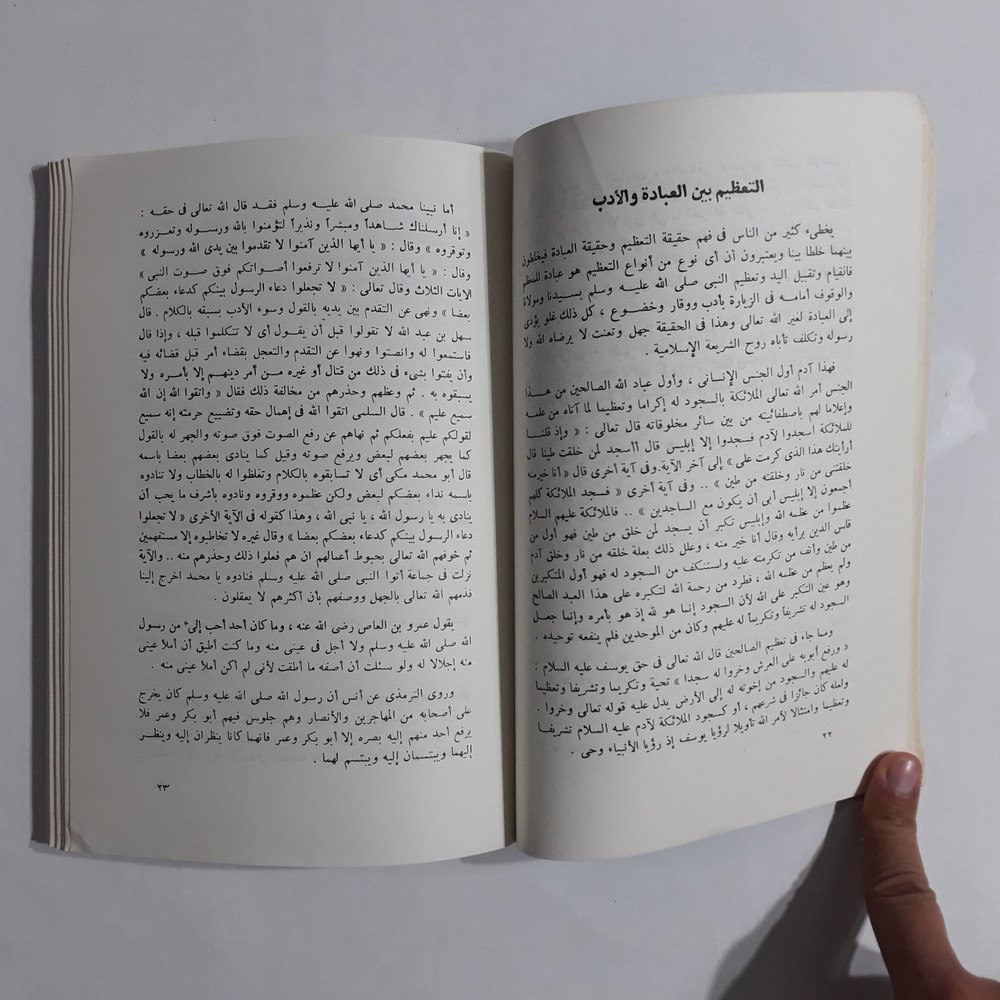 التعظيم بين العبادة والأدب
يخطىء كثير من الناس فى فهم حقيقة التعظيم وحقيقة العبادة فيخلطون
بينهما خلطا بينا ويعتبرون أن أى نوع من أنواع التعظيم هو عبادة للمعظم
فالقيام وتقبيل اليد وتعظيم النبى صلى الله عليه وسلم بسيدنا ومولانا
والوقوف أمامه فى الزيارة بأدب ووقار وخضوع ، كل ذلك غلو يؤدى
إلى العبادة لغير الله تعالى وهذا فى الحقيقة جهل وتعنت لا يرضاه الله ولا
رسوله وتكلف تأباه روح الشريعة الإسلامية .
فهذا آدم أول الجنس الإنسانى ، وأول عباد الله الصالحين من هـذا
الجنس أمر الله تعالى الملائكة بالسجود له إكراما وتعظيما لما آتاه من علمه
وإعلاما لهم باصطفائيته من بين سائر مخلوقاته قال تعالى : « وإذ قلنا
للملائكة اسجدوا لآدم فسجدوا إلا إبليس قال أأسجد لمن خلقت طينا قال
أرأيتك هذا الذى كرمت على » إلى آخر الآية.وفى آية أخرى قال « أنا خير منه
خلقتنى من نار وخلقته من طين » .. وفى آية أخرى « فسجد الملائكة كلهم
اجمعون إلا إبليس أبى أن يكون مع الساجدين » .. فالملائكة عليهم السلام
عظموا من عظمه الله وإبليس تكبر أن يسجد لمن خلق من طين فهو أول من
قاس الدين برأيه وقال أنا خير منه ، وعلل ذلك بعلة خلقه من نار وخلق آدم
من طين وأنف من تكرمته عليه واستنكف من السجود له فهو أول المتكبرين
ولم يعظم من عظمه الله ، فطرد من رحمة الله لتكبره على هذا العبد الصالح
وهو عين التكبر على الله لأن السجود إنما هو لله إذ هو بأمره وإنما جعل
السجود له تشريفاً وتكريماً له عليهم وكان من الموحدين فلم ينفعه توحيده .
ومما جاء فى تعظيم الصالحين قال الله تعالى فى حق يوسف عليه السلام :
« ورفع أبويه على العرش وخروا له سجدا » تحية وتكريما وتشريفا وتعظيما
له عليهم والسجود من إخوته له إلى الأرض يدل عليه قوله تعالى وخروا .
ولعله كان جائزا فى شرعهم ، أو كسجود الملائكة لآدم عليه السلام تشريفا
وتعظيما وامتثالا لأمر الله تأويلا لرؤيا يوسف إذ رؤيا الأنبياء وحى .
٢٢
أما نبينا محمد صلى الله عليه وسلم فقد قال الله تعالى فى حقه :
« إنا أرسلناك شاهداً ومبشراً ونذيراً لتؤمنوا بالله ورسوله وتعزروه
وتوقروه » وقال : « يا أيها الذين آمنوا لا تقدموا بين يدى الله ورسوله »
وقال : « يا أيها الذين آمنوا لا ترفعوا أصواتكم فوق صوت النبى »
الايات الثلاث وقال تعالى : « لا تجعلوا دعاء الرسول بينكم كدعاء بعضكم
بعضا » ونهى عن التقدم بين يديه بالقول وسوء الأدب بسبقه بالكلام . قال
سهل بن عبد الله لا تقولوا قبل أن يقول أى لا تتكلموا قبله ، وإذا قال
فاستمعوا له وانصتوا ونهوا عن التقدم والتعجل بقضاء أمر قبل قضائه فيه
وأن يفتوا بشىء فى ذلك من قتال أو غيره من أمر دينهم إلا بأمره ولا
يسبقوه به . ثم وعظهم وحذرهم من مخالفة ذلك فقال « واتقوا الله إن الله
سميع عليم » . قال السلمى اتقوا الله فى إهمال حقه وتضييع حرمته إنه سميع
لقولكم عليم بفعلكم ثم نهاهم عن رفع الصوت فوق صوته والجهر له بالقول
كما يجهر بعضهم لبعض ويرفع صوته وقيل كما ينادى بعضهم بعضا باسمه
قال أبو محمد مكى أى لا تسابقوه بالكلام وتغلظوا له بالخطاب ولا تنادوه
باسمه نداء بعضكم لبعض ولكن عظموه ووقروه ونادوه بأشرف ما يحب أن
ينادى به يا رسول الله ، يا نبى الله ، وهذا كقوله فى الآية الأخرى « لا تجعلوا
دعاء الرسول بينكم كدعاء بعضكم بعضا » وقال غيره لا تخاطبوه إلا مستفهمين
ثم خوفهم الله تعالى بحبوط أعمالهم ان هم فعلوا ذلك وحذرهم منه .. والآية
نزلت فى جماعة أتوا النبى صلى الله عليه وسلم فنادوه يا محمد اخرج إلينا
فذمهم الله تعالى بالجهل ووصفهم بأن أكثرهم لا يعقلون .
يقول عمرو بن العاص رضى الله عنه ، وما كان أحد أحب إلىّ من رسول
الله صلى الله عليه وسلم ولا أجل فى عينى منه وما كنت أطيق أن أملأ عينى
منه إجلالا له ولو سئلت أن أصفه ما أطقت لأنى لم اكن أملأ عينى منه .
وروى الترمذى عن أنس أن رسول الله صلى الله عليه وسلم كان يخرج
على أصحابه من المهاجرين والأنصار وهم جلوس فيهم أبو بكر وعمر فلا
يرفع أحد منهم إليه بصره إلا أبو بكر وعمر فانهما كانا ينظران إليه وينظر
إليهما ويبتسمان إليه ويبتسم لهما .
٢٣